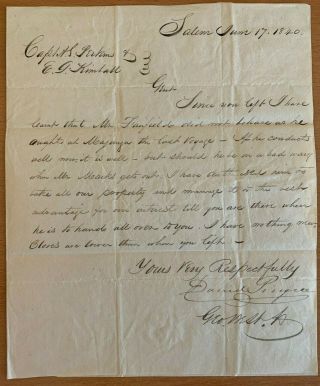 Salem June 17. 1840.
Capt N. L. &
E. G. Kimball
Gent
Since you left I have
learnt that Mr. did not behave as he
ought at Majunga the last voyage - If he conducts
well now, it is well - but should he be in a bad way
when Mr. Marks gets out, I have authorized him to
take all our property and manage it to the best
advantage for our interest till you are there when
he is to hand all over to you. I have nothing new
Cloves are lower than when you left -
Yours Very Respectfully
Geo. W.